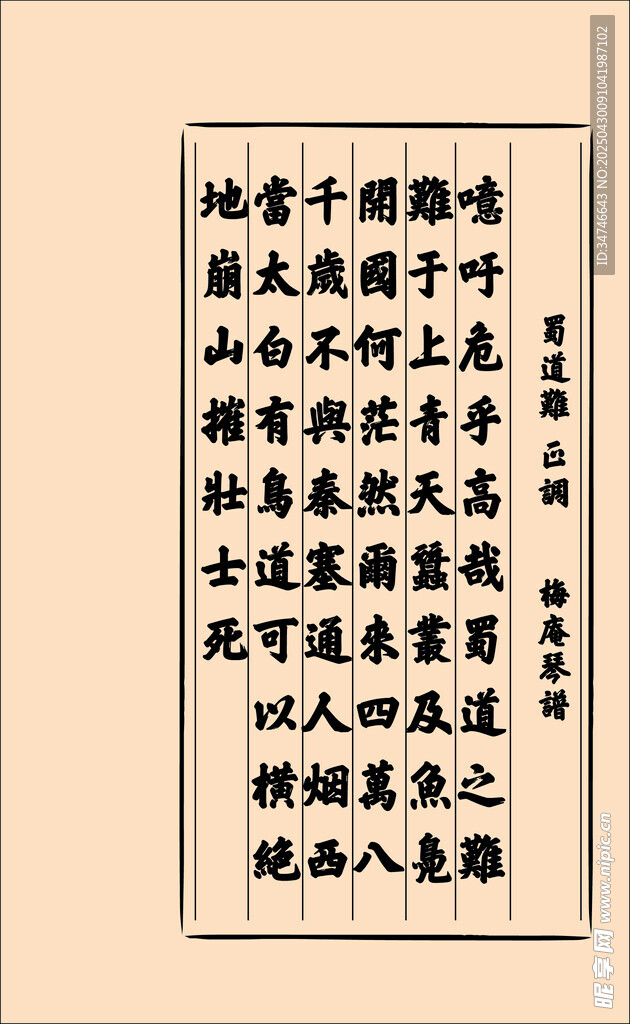 蜀道難 正調 梅庵琴譜
噫吁危乎高哉蜀道之難
難于上青天蠶叢及魚鳧
開國何茫然爾來四萬八
千歲不與秦塞通人烟西
當太白有鳥道可以橫絕
地崩山摧壯士死
ID:34746643 NO:20250430091041987102
昵享网 www.nipic.cn